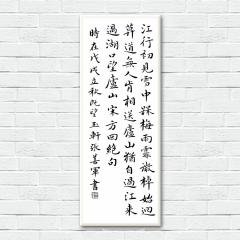 江行初見雪中梅梅雨霏微棹始迴
莫道無人肯相送廬山猶自過江來
過湖口望廬山宋方回絕句
時在戊戌立秋於望玉軒張善軍書